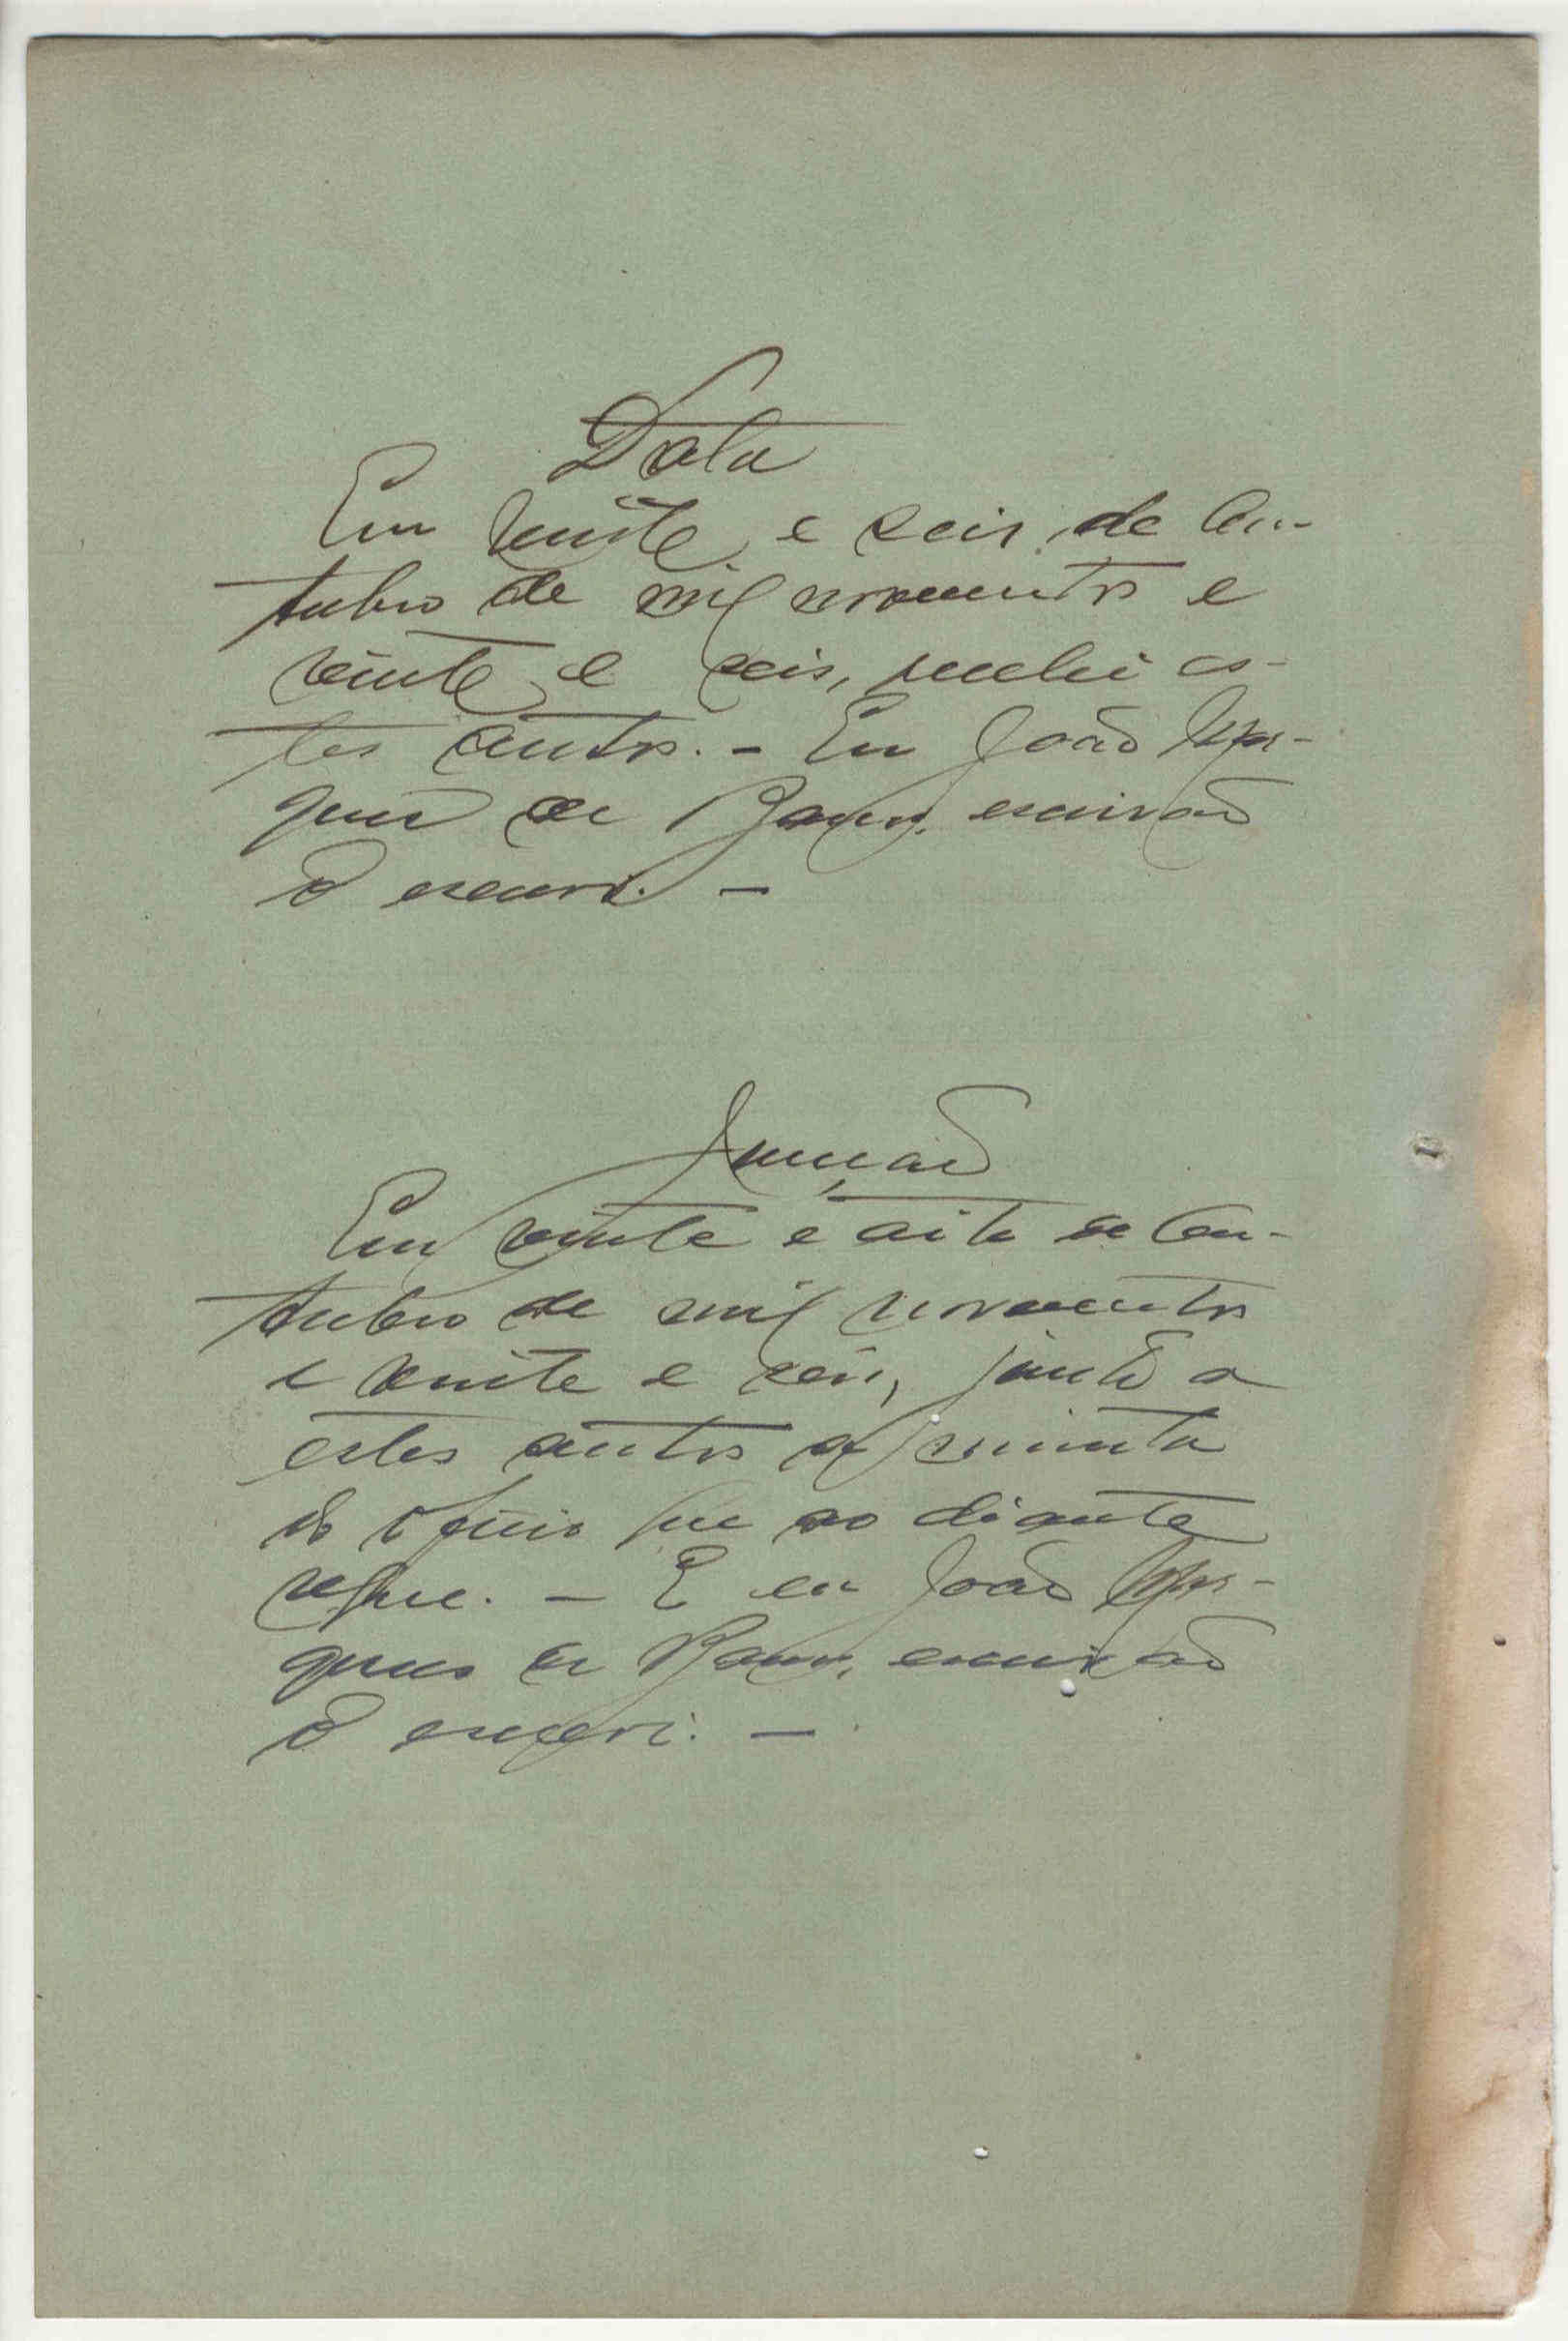 Data
Em vinte e seis de Ou-
tubro de mil novecentos e
vinte e seis, recebi es-
tes autos. - Eu João Mar-
ques de escrivão
o escrevi. -
Juncão
Em vinte e oito de Ou-
tubro de mil novecentos
e vinte e seis, junto a
estes autos a minuta
do oficio que ao diante
segue. - E eu João Mar-
ques de escrivão
o escrevi. -